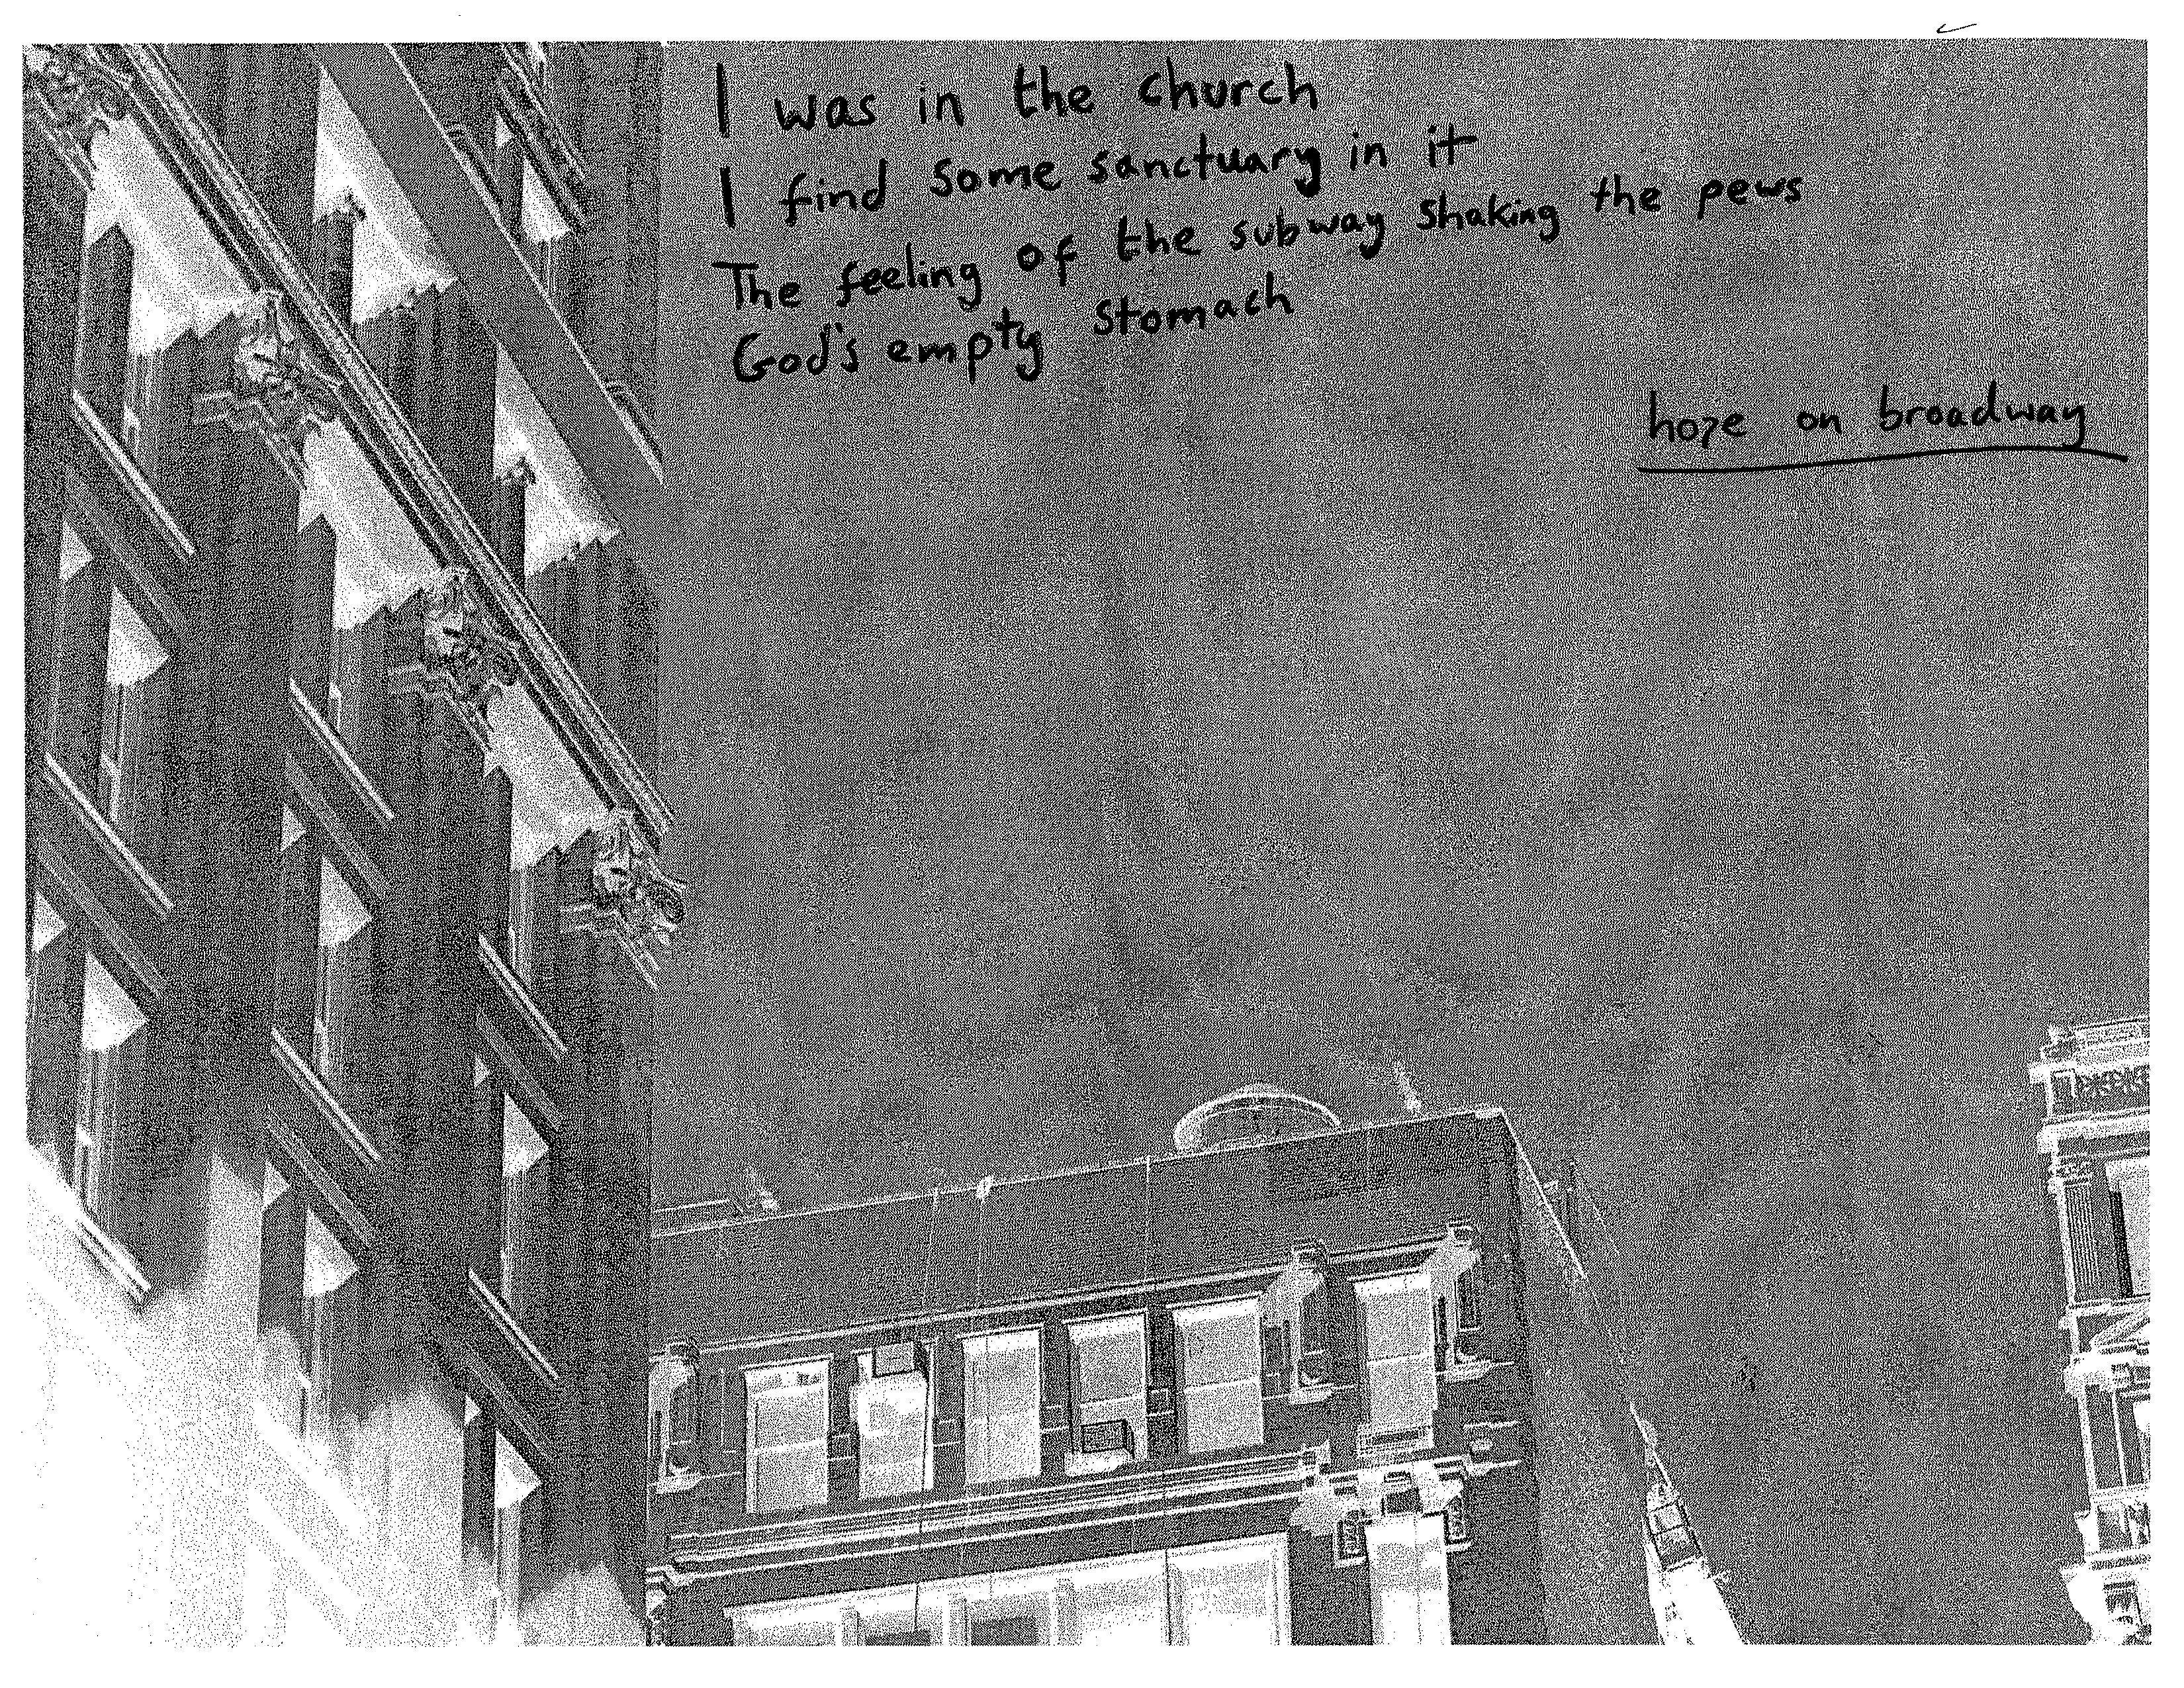 I was in the church
I find some sanctuary in it
The feeling of the subway shaking the pews
God's empty stomach
hope on broadway